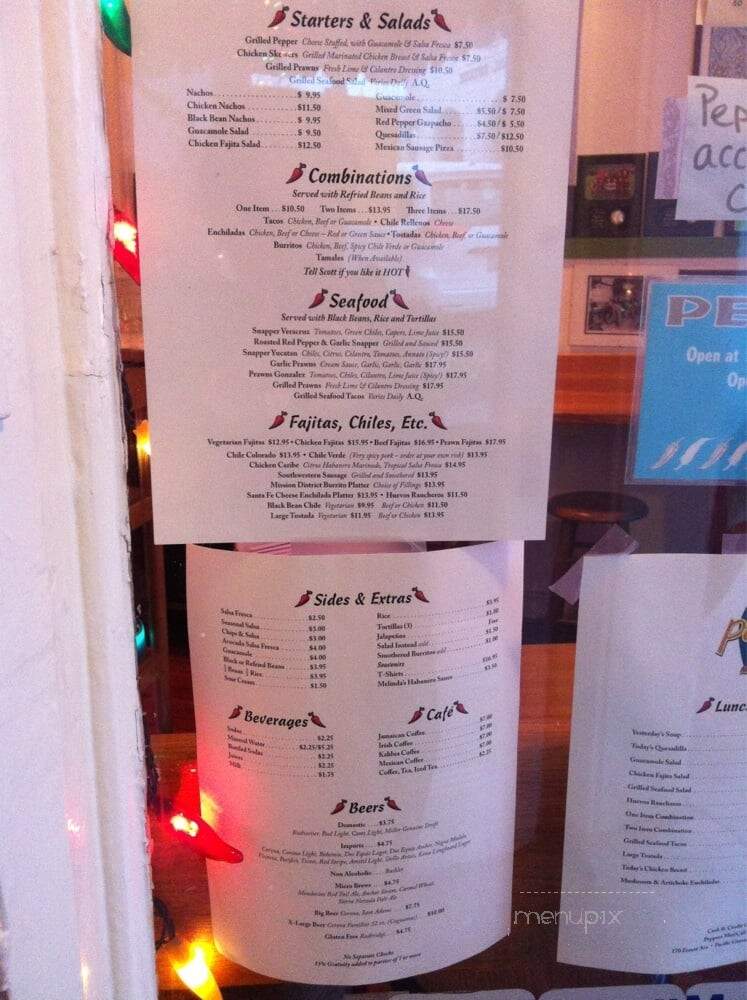 Starters & Salads
Grilled Pepper Cheese Stuffed, with Guacamole & Salsa Fresca $7.50
Chicken Skewers Grilled Marinated Chicken Breast & Salsa Fresca $7.50
Grilled Prawns Fresh Lime & Cilantro Dressing $10.50
Grilled Seafood Salad Varies Daily A.Q.
Nachos $ 9.95
Chicken Nachos $11.50
Black Bean Nachos $ 9.95
Guacamole Salad $ 9.50
Chicken Fajita Salad $12.50
Guacamole $ 7.50
Mixed Green Salad $5.50/$ 7.50
Red Pepper Gazpacho $4.50/$ 5.50
Quesadillas $7.50/$12.50
Mexican Sausage Pizza $10.50
Combinations
Served with Refried Beans and Rice
One Item $10.50 Two Items $13.95 Three Items $17.50
Tacos Chicken, Beef or Guacamole • Chile Rellenos Cheese
Enchiladas Chicken, Beef or Cheese – Red or Green Sauce • Tostadas Chicken, Beef, or Guacamole
Burritos Chicken, Beef, Spicy Chile Verde or Guacamole
Tamales (When Available)
Tell Scott if you like it HOT
Seafood
Served with Black Beans, Rice and Tortillas
Snapper Veracruz Tomatoes, Green Chiles, Capers, Lime Juice $15.50
Roasted Red Pepper & Garlic Snapper Grilled and Sauced $15.50
Snapper Yucatan Chiles, Citrus, Cilantro, Tomatoes, Annato (Spicy!) $15.50
Garlic Prawns Cream Sauce, Garlic, Garlic, Garlic $17.95
Prawns Gonzalez Tomatoes, Chiles, Cilantro, Lime Juice (Spicy!) $17.95
Grilled Prawns Fresh Lime & Cilantro Dressing $17.95
Grilled Seafood Tacos Varies Daily A.Q.
Fajitas, Chiles, Etc.
Vegetarian Fajitas $12.95 • Chicken Fajitas $15.95 • Beef Fajitas $16.95 • Prawn Fajitas $17.95
Chile Colorado $13.95 • Chile Verde (Very spicy pork – order at your own risk) $13.95
Chicken Caribe Citrus Habanero Marinade, Tropical Salsa Fresca $14.95
Southwestern Sausage Grilled and Smothered $13.95
Mission District Burrito Platter Choice of Fillings $13.95
Santa Fe Cheese Enchilada Platter $13.95 • Huevos Rancheros $11.50
Black Bean Chile Vegetarian $9.95 Beef or Chicken $11.50
Large Tostada Vegetarian $11.95 Beef or Chicken $13.95
Sides & Extras
Salsa Fresca $2.50
Seasonal Salsa $3.00
Chips & Salsa $3.00
Avocado Salsa Fresca $4.00
Guacamole $4.00
Black or Refried Beans $3.95
Beans Rice $3.95
Sour Cream $1.50
Rice $3.95
Tortillas (3) $1.00
Jalapeños Free
Salad Instead add $1.50
Smothered Burritos add $1.00
Souvenirs
T-Shirts $16.95
Melinda's Habanero Sauce $3.50
Beverages
Sodas $2.25
Mineral Water $2.25/$5.25
Bottled Sodas $2.25
Juices $2.25
Milk $1.75
Café
Jamaican Coffee $7.00
Irish Coffee $7.00
Kahlua Coffee $7.00
Mexican Coffee $7.00
Coffee, Tea, Iced Tea $2.25
Beers
Domestic $3.75
Budweiser, Bud Light, Coors Light, Miller Genuine Draft
Imports $4.75
Corona, Corona Light, Bohemia, Dos Equis Lager, Dos Equis Amber, Negra Modelo,
Victoria, Pacifico, Tecate, Red Stripe, Amstel Light, Stella Artois, Kona Longboard Lager
Non Alcoholic Buckler
Micro Brews $4.75
Mendocino Red Tail Ale, Anchor Steam, Caramel Wheat,
Sierra Nevada Pale Ale
Big Beer Corona, Sam Adams $7.75
X-Large Beer Corona Familiar 32 oz. (Caguama) $10.00
Gluten Free Redbridge $4.75
No Separate Checks
15% Gratuity added to parties of 7 or more
Pep
acc
C
PE
Open at
Op
Lunc
Yesterday's Soup
Today's Quesadilla
Guacamole Salad
Chicken Fajita Salad
Grilled Seafood Salad
Huevos Rancheros
One Item Combination
Two Item Combination
Grilled Seafood Tacos
Large Tostada
Today's Chicken Breast
Mushroom & Artichoke Enchiladas
Cash & Credit C
170 Forest Ave • Pacific Grove
menupix